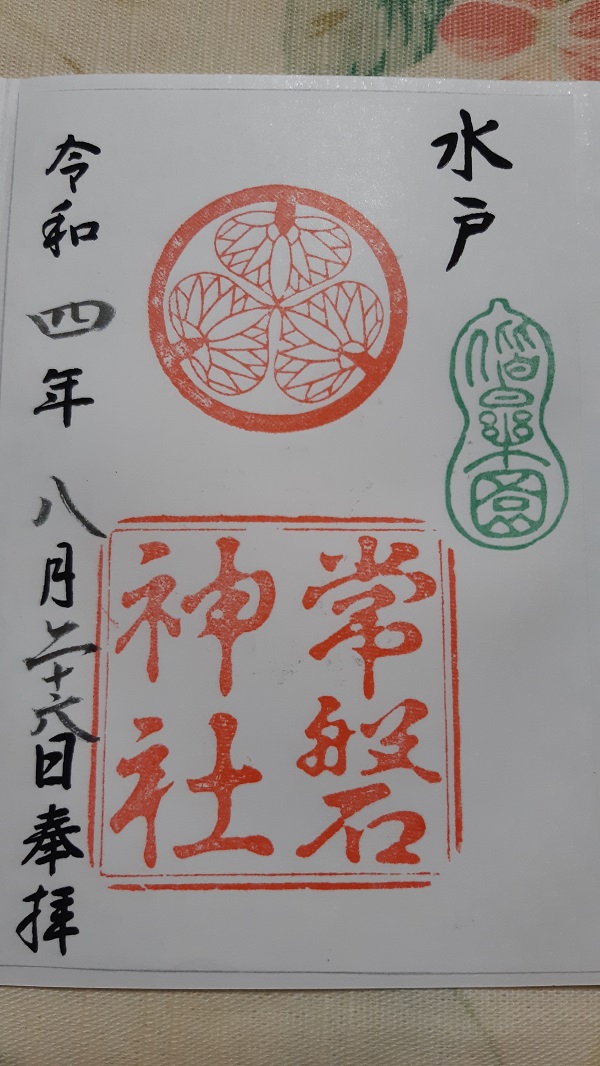 水戸
偕楽園
常磐
神社
令和四年八月二十六日奉拝